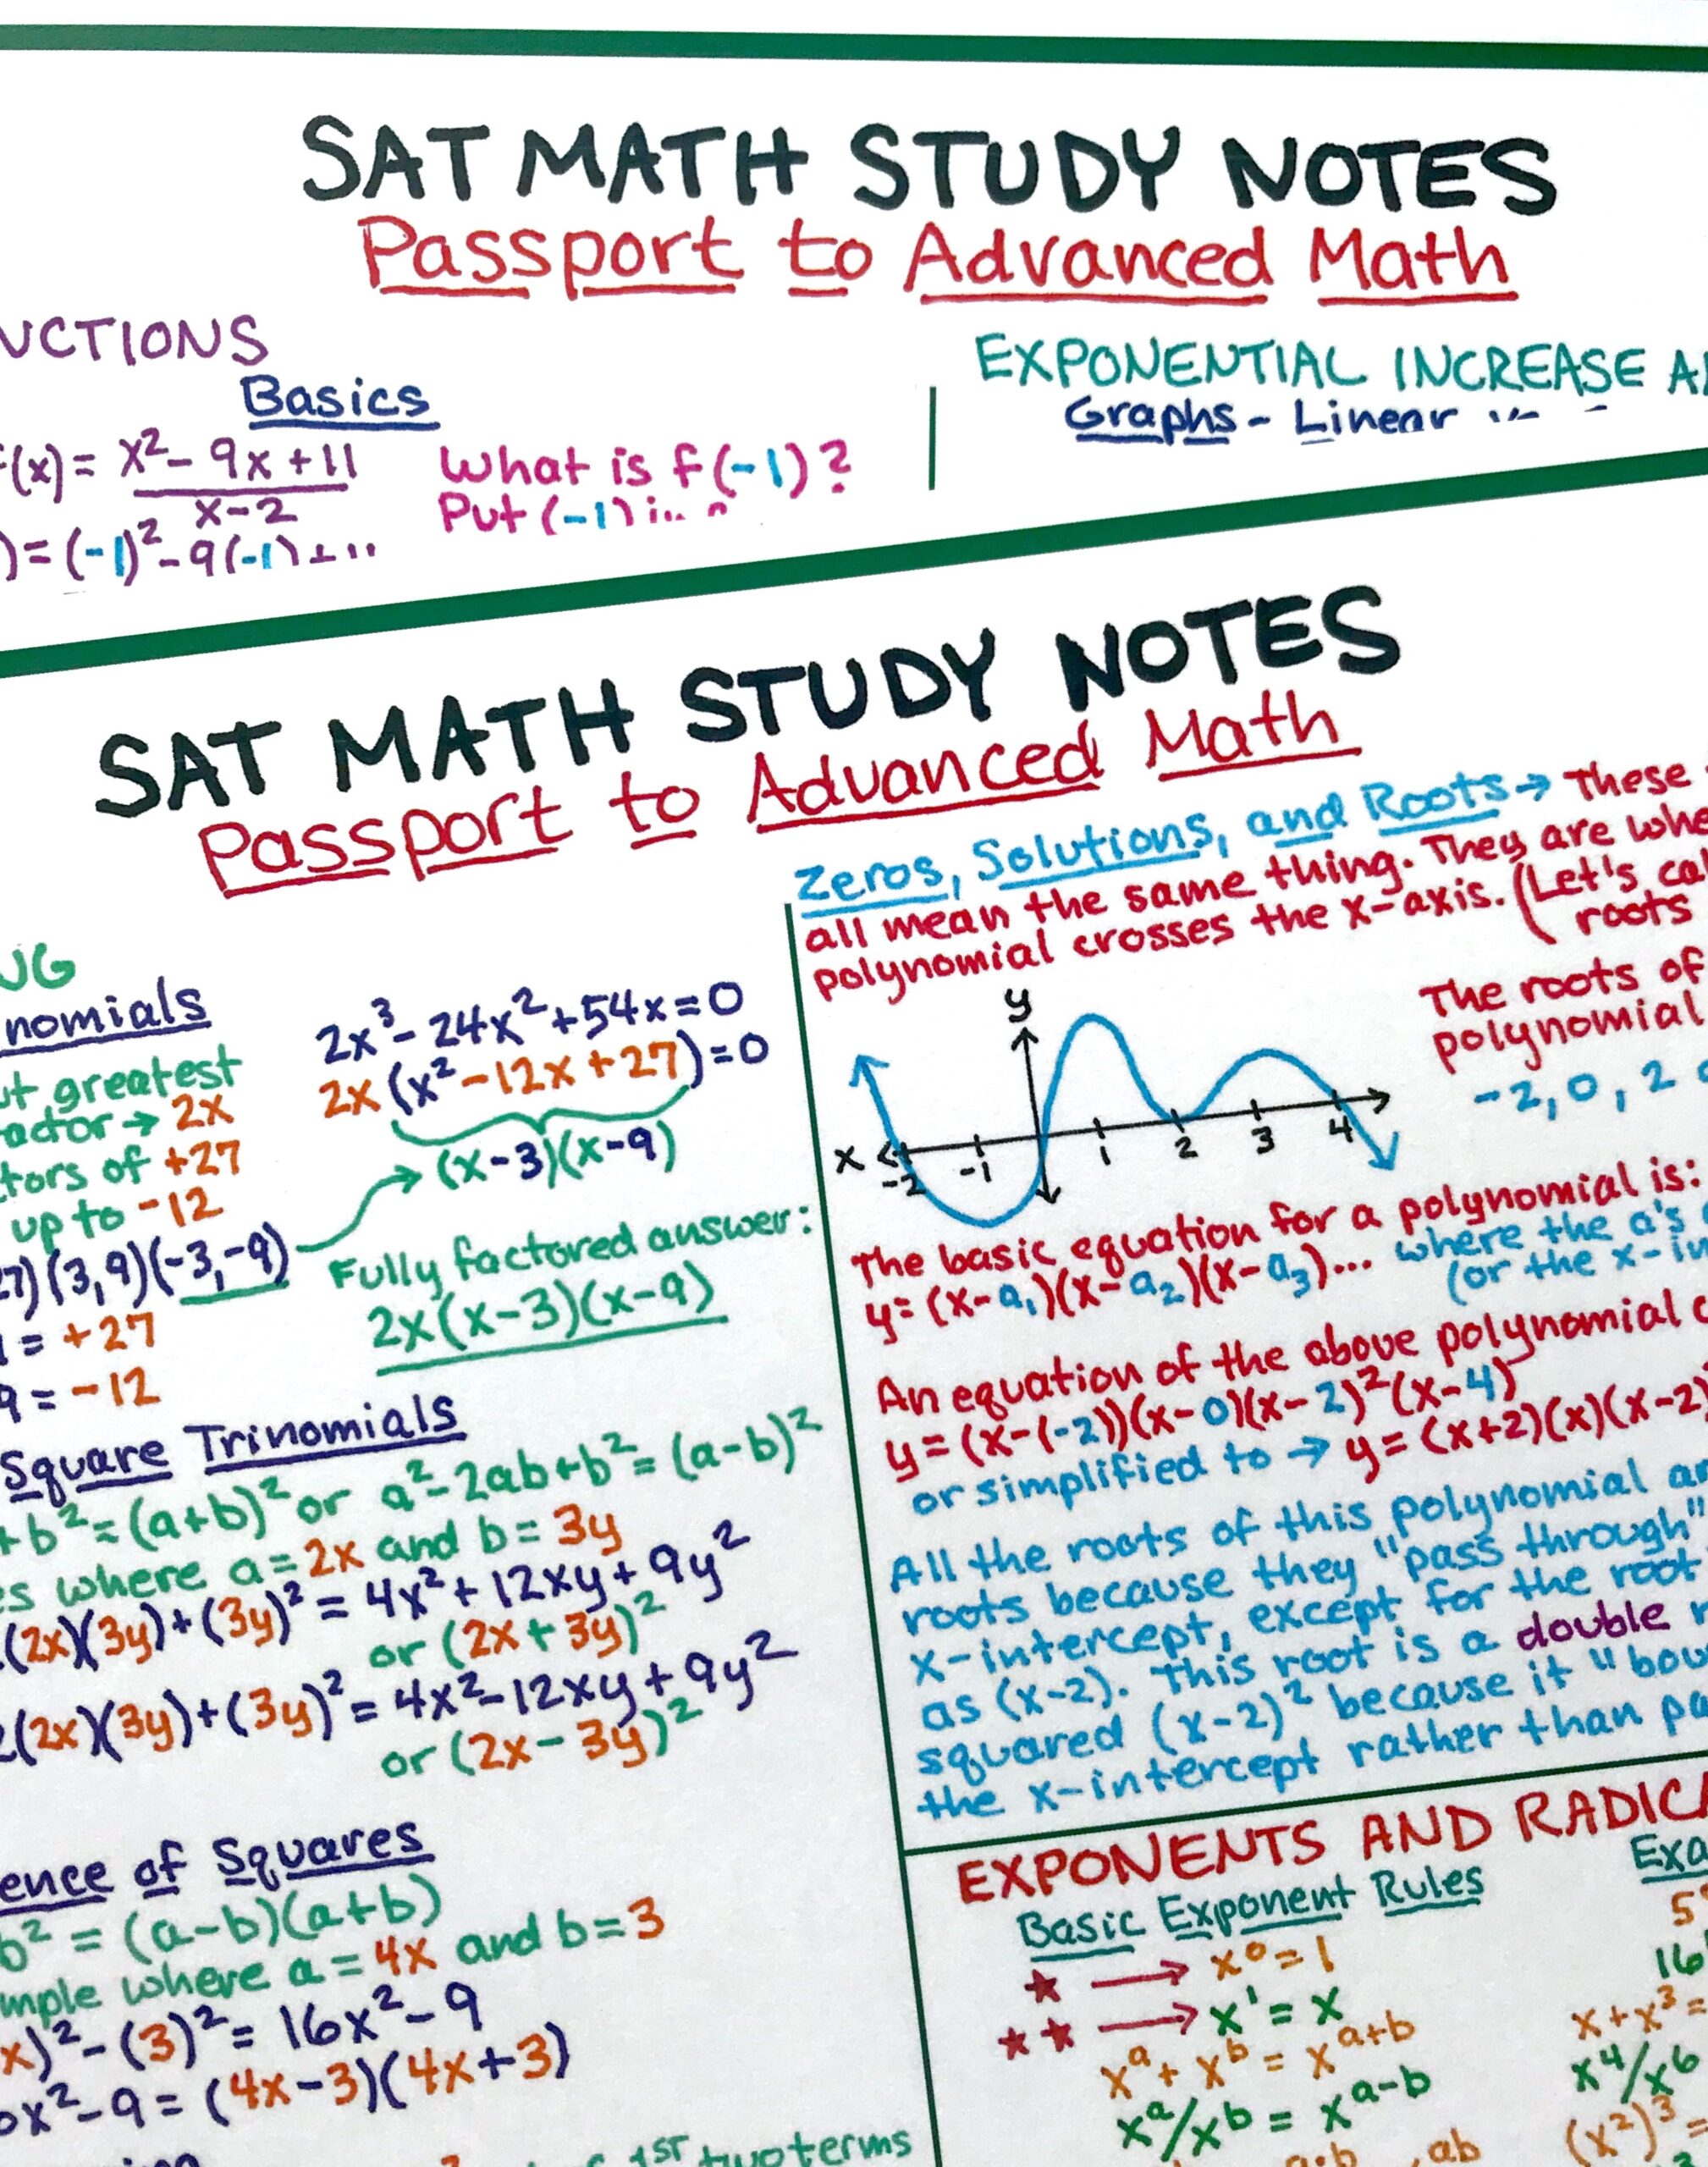 SAT MATH STUDY NOTES
Passport to Advanced Math
UCTIONS
Basics
f(x) = x² - 9x + 11
x - 2
) = (-1)² - 9(-1) +
What is f(-1)?
Put (-1) in
EXPONENTIAL INCREASE A
Graphs - Linear
SAT MATH STUDY NOTES
Passport to Advanced Math
NG
nomials
ut greatest
actor → 2x
tors of +27
up to -12
27) (3,9)(-3,-9)
= +27
9 = -12
2x³ - 24x² + 54x = 0
2x (x² - 12x + 27) = 0
(x-3)(x-9)
Fully factored answer:
2x(x-3)(x-9)
Square Trinomials
+b² = (a+b)² or a² - 2ab + b² = (a-b)²
es where a = 2x and b = 3y
(2x)(3y) + (3y)² = 4x² + 12xy + 9y²
or (2x + 3y)²
2(2x)(3y) + (3y)² = 4x² - 12xy + 9y²
or (2x - 3y)²
ence of Squares
b² = (a-b)(a+b)
mple where a = 4x and b = 3
x)² - (3)² = 16x² - 9
6x² - 9 = (4x-3)(4x+3)
1ST two terms
Zeros, Solutions, and Roots → These
all mean the same thing. They are whe
polynomial crosses the x-axis. (Let's cal
roots
The roots of
polynomial
-2, 0, 2
y
x
-2 -1 1 2 3 4
The basic equation for a polynomial is:
y = (x-a₁)(x-a₂)(x-a₃)... where the a's
(or the x-in
An equation of the above polynomial c
y = (x-(-2))(x-0)(x-2)²(x-4)
or simplified to → y = (x+2)(x)(x-2)
All the roots of this polynomial ar
roots because they "pass through"
x-intercept, except for the root
as (x-2). This root is a double
squared (x-2)² because it "bou
the x-intercept rather than pa
EXPONENTS AND RADICA
Basic Exponent Rules
Exa
★ → x⁰ = 1
5
★★ → x¹ = x
16
xᵃ + xᵇ = xᵃ⁺ᵇ
x + x³ =
xᵃ/xᵇ = xᵃ⁻ᵇ
x⁴/x⁶
a·b ab
(x²)³ =